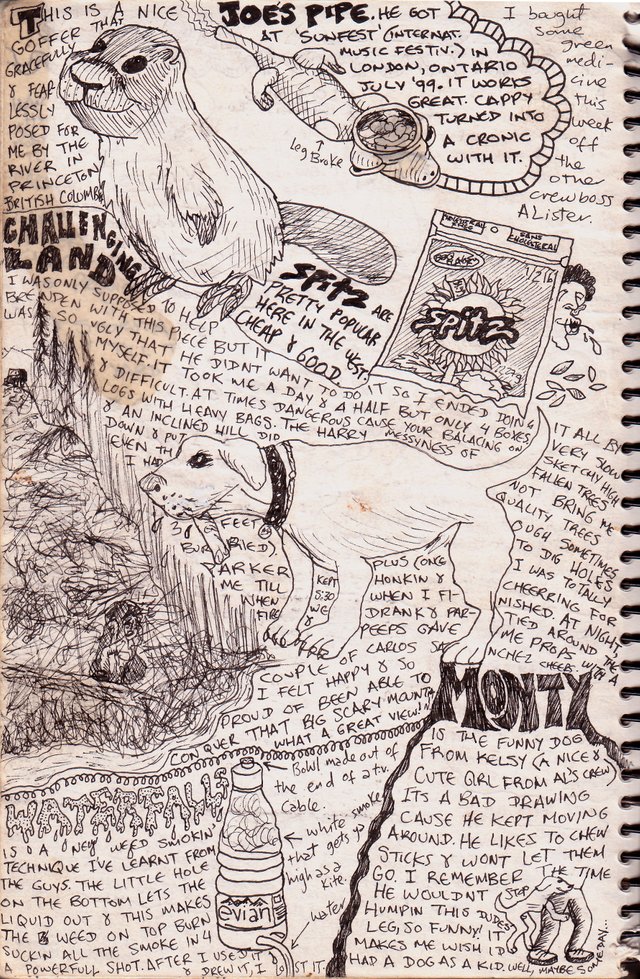 THIS IS A NICE
GOFFER THAT
GRACEFULLY
& FEAR-
LESSLY
POSED FOR
ME BY THE
RIVER IN
PRINCETON,
BRITISH COLUMBIA
JOE'S PIPE. HE GOT
AT 'SUNFEST' (INTERNAT.
MUSIC FESTIV.) IN
LONDON, ONTARIO
JULY '99. IT WORKS
GREAT. CAPPY
TURNED INTO
A CRONIC
WITH IT.
Leg Broke
I bought
some
green
medi-
cine
this
week
off
the
other
crewboss
Alister.
CHALLENGING
LAND
SPITZ ARE
PRETTY POPULAR
HERE IN THE WEST.
CHEAP & GOOD
SPITZ
I WAS ONLY SUPPOSED TO HELP
BRENDEN WITH THIS PIECE BUT IT
WAS SO UGLY THAT HE DIDNT WANT TO DO IT SO I ENDED DOING IT ALL BY
MYSELF. IT TOOK ME A DAY & A HALF BUT ONLY 4 BOXES. VERY SLOW
& DIFFICULT. AT TIMES DANGEROUS CAUSE YOUR BALACING ON SKETCHY HIGH
LOGS WITH HEAVY BAGS. THE HARRY MESSYNESS OF FALLEN TREES
& AN INCLINED HILL DID NOT BRING ME
DOWN & PUT QUALITY TREES
EVEN TH OUGH SOMETIMES
I HAD TO DIG HOLES
3 FEET
BUR (BIED). I WAS TOTALLY
ARKER CHEERRING FOR
ME TILL NISHED AT NIGHT,
WHEN TIED AROUND THE
FIRE ME PROPS WITH A
KEPT
5:30
WE &
PLUS (ONE
HONKIN &
WHEN I FI-
DRANK & PAR-
PEEPS GAVE
COUPLE OF CARLOS SANCHEZ CHEEBS.
I FELT HAPPY & SO
PROUD OF BEEN ABLE TO
CONQUER THAT BIG SCARY MOUNTAIN
WHAT A GREAT VIEW!
MONTY
IS THE FUNNY DOG
FROM KELSY (A NICE &
CUTE GIRL FROM AL'S CREW)
ITS A BAD DRAWING
CAUSE HE KEPT MOVING
AROUND. HE LIKES TO CHEW
STICKS & WONT LET THEM
GO. I REMEMBER THE TIME
HE WOULDNT STOP
HUMPIN THIS DUDES
LEG, SO FUNNY! IT
MAKES ME WISH I'D
HAD A DOG AS A KID. WELL, MAYBE SOMEDAY...
WATERFALLS
IS A NEW WEED SMOKIN'
TECHNIQUE I'VE LEARNT FROM
THE GUYS. THE LITTLE HOLE
ON THE BOTTOM LETS THE
LIQUID OUT & THIS MAKES
THE WEED ON TOP BURN
SUCKIN ALL THE SMOKE IN 4
POWERFULL SHOT. AFTER I USED IT
& DREW IT, I LOST IT.
Bowl made out of
the end of a tv.
cable.
white smoke
that gets ya
high as a
kite.
water
evian